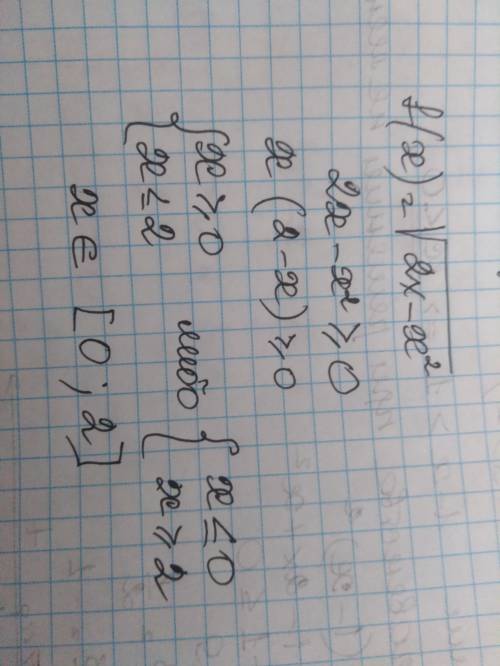 f(x) = √2x - x²
2x - x² ⩾ 0
x (2 - x) ⩾ 0
{ x ⩾ 0 либо { x ≤ 0
{ x ≤ 2 { x ⩾ 2
x ∈ [0; 2]